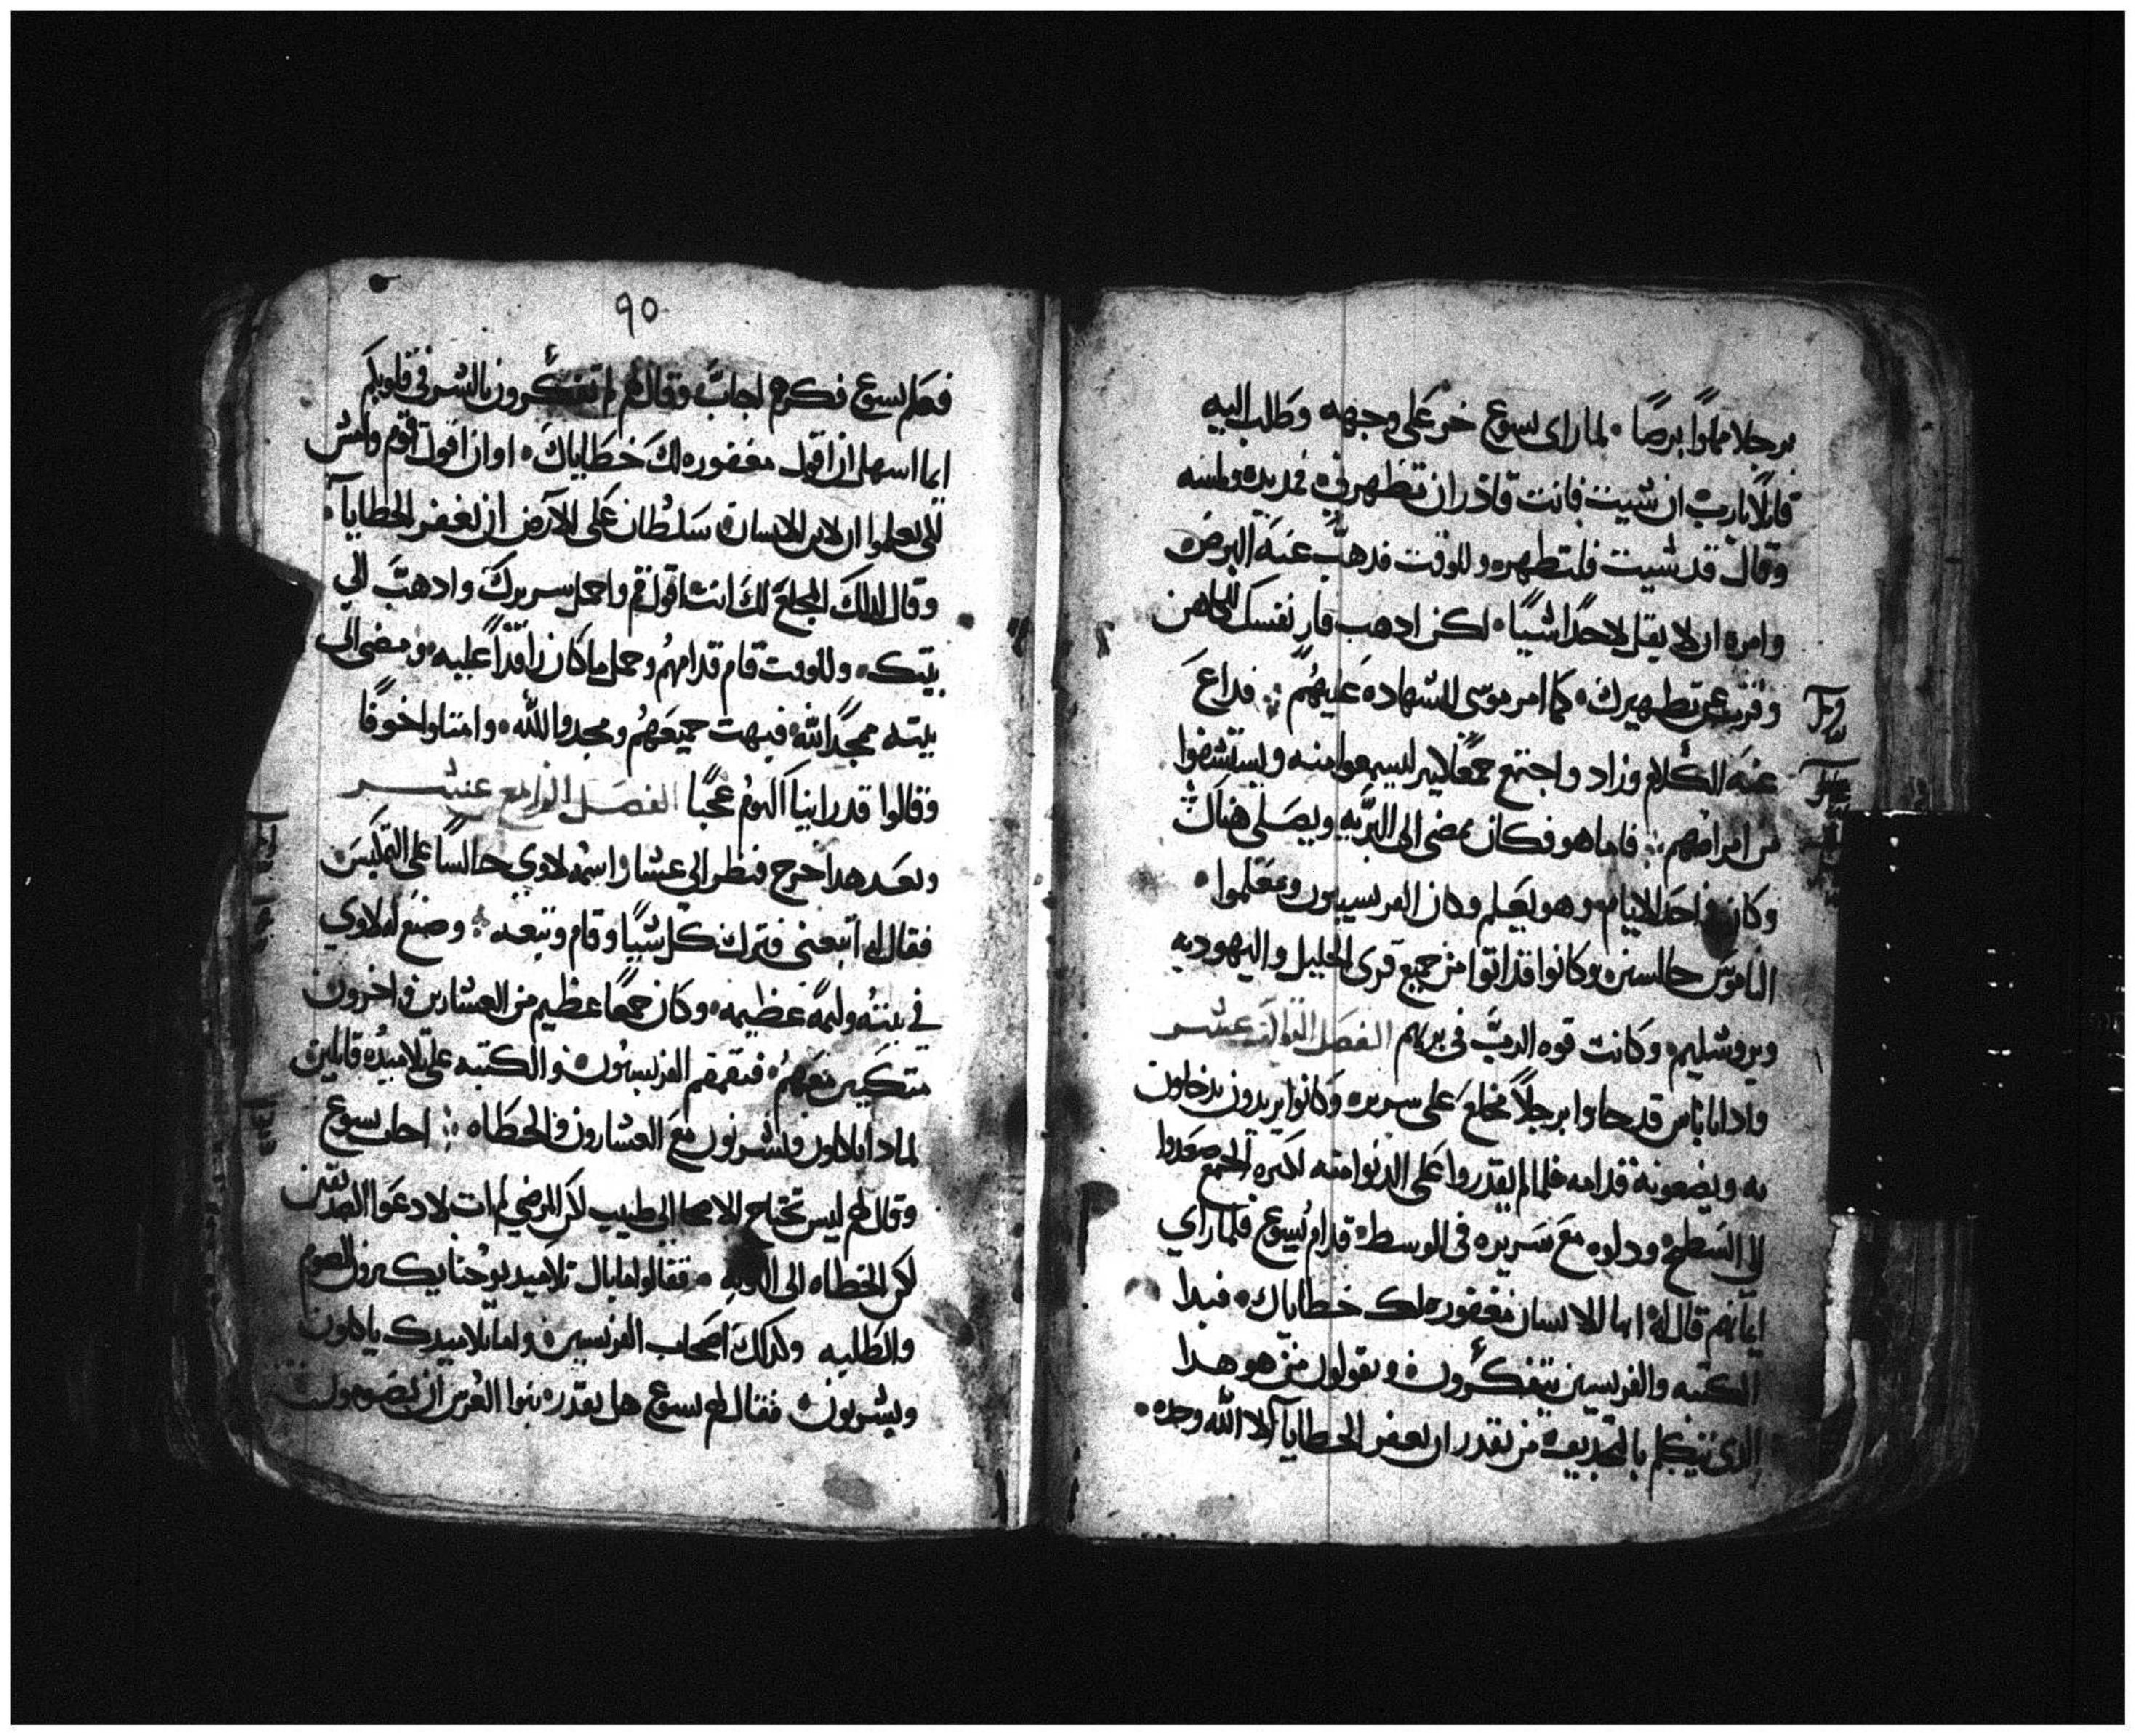 برجلا مملوًا برصًا • لما راى يسوع خر على وجهه وطلب اليه
قايلًا يارب ان شيت فانت قادر ان تطهرني فمد يده ولمسه
وقال قد شيت فلتطهر وللوقت ذهب عنه البرص
وامره ان لا يقل لاحدًا شيًا • لكن ادهب فار نفسك للكاهن
وقرب عن تطهيرك • كما امر موسى للشهاده عليهم ⁘ فداع
عنه الكلام وزاد واجتمع جمعًا كبير ليسمعوا منه ويستشفوا
من امراضهم ⁘ فاما هو فكان يمضي الى البريه ويصلي هناك
وكان في احد الايام وهو يعلم وكان الفريسيون ومعلموا •
الناموس جالسين وكانوا قد اتوا من جميع قرى الجليل واليهوديه
ويروشليم • وكانت قوه الرب في بريهم الفصل التالت عشر
وادا اناس قد جاوا برجلًا مخلع على سريره وكانوا يريدون يدخلون
به ويضعونه قدامه فلما لم يقدروا على الدنوا منه لكثره الجمع صعدوا
الى السطح ودلوه مع سريره في الوسط • قدام يسوع فلما راي
ايمانهم قال له ايها الانسان مغفوره لك خطاياك • فبدا
الكتبه والفريسين يتفكرون ويقولون من هو هدا
الدي يتكلم بالتجديف من يقدر ان يغفر الخطايا الا الله وحده •
٩٥
فعلم يسوع فكرهم اجاب وقال لهم لم تفتكرون بالشر في قلوبكم
ايما اسهل ان اقول مغفوره لك خطاياك • او ان اقول قوم وامش
لكي يعلموا ان لابن الانسان سلطان على الارض ان يغفر الخطايا •
وقال لدلك المخلع لك انت اقول قم واحمل سريرك وادهب الي
بيتك • وللوقت قام قدامهم وحمل ما كان راقدًا عليه • ومضى الى
بيته ممجدًا لله فبهت جميعهم ومجدوا الله • وامتلوا خوفًا
وقالوا قد راينا اليوم عجبًا الفصل الرابع عشر
وبعد هدا خرج فنظر الي عشار اسمه لاوي جالسًا على التمكيس
فقال له اتبعني فترك كل شيًا وقام وتبعه ⁘ وصنع له لاوي
في بيته وليمه عظيمه • وكان جمعًا عظيم من العشارين واخرون
متكيين معهم • فتقمقم الفريسيون والكتبه على تلاميده قايلين
لمادا تاكلون وتشربون مع العشارون والخطاه ⁘ اجاب يسوع
وقال لهم ليس تحتاج الاصحا الى طبيب لكن المرضى لم ات لادعوا الصديقين
لكن الخطاه الى التوبه • فقالوا ما بال تلاميد يوحنا يكثرون الصوم
والطلبه وكدلك اصحاب الفريسين • واما تلاميدك ياكلون
ويشربون فقال لهم يسوع هل يقدر بنوا العرس ان يصومون